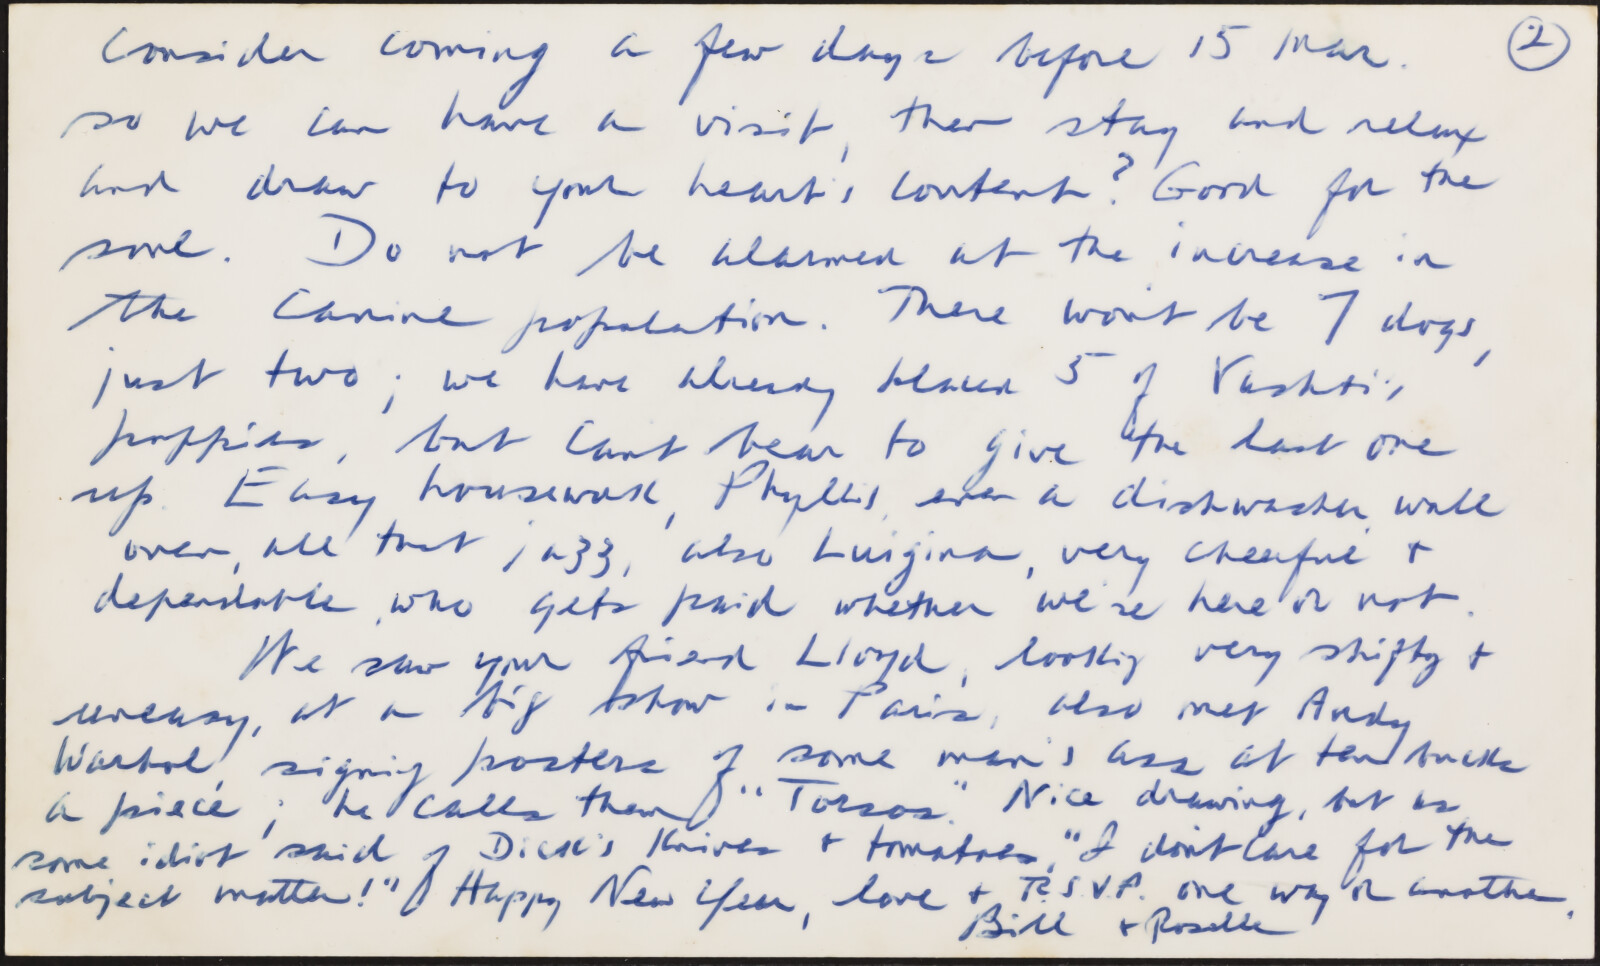 Consider coming a few days before 15 Mar. (2)
so we can have a visit, then stay and relax
and draw to your heart's content? Good for the
soul. Do not be alarmed at the increase in
the canine population. There won't be 7 dogs,
just two; we have already placed 5 of Vashti's
puppies, but can't bear to give the last one
up. Easy housework, Phyllis, even a dishwasher, wall
oven, all that jazz, also Luigina, very cheerful +
dependable, who gets paid whether we're here or not.
We saw your friend Lloyd, looking very shifty +
uneasy, at a big show in Paris, also met Andy
Warhol, signing posters of some man's ass at ten bucks
a piece; he calls them "Torsos." Nice drawing, but as
some idiot said of Dick's knives + tomatoes, "I don't care for the
subject matter!" Happy New Year, love + R.S.V.P. one way or another,
Bill + Roselle